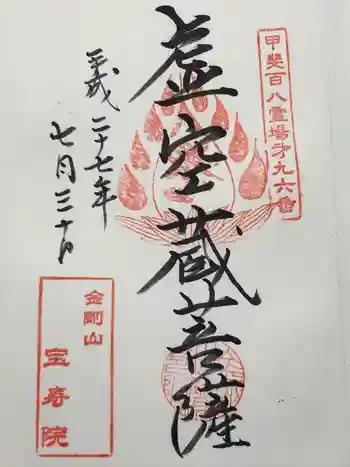 甲斐百八霊場才九六番
虚空蔵菩薩
平成二十七年
七月三十日
金剛山
宝寿院